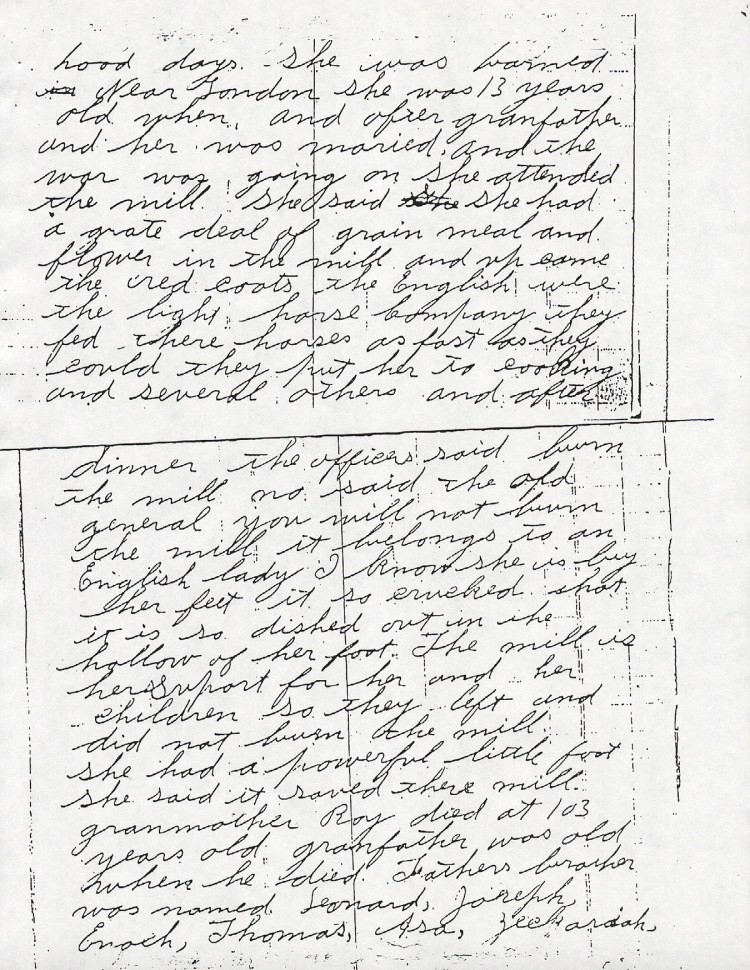 hood days. She was barned
in Near London she was 13 years
old when, and after granfather
and her was maried, and the
war was going on she attended
the mill she said She she had
a grate deal of grain meal and
flower in the mill and up came
the red coats the English were
the light horse Company they
fed there horses as fast as they
could they put her to cooking
and several others and after
dinner the officers said burn
the mill no said the old
general you will not burn
the mill it belongs to an
English lady I know she is by
her feet it so crucked that
it is so dished out in the
hollow of her foot. The mill is
her suport for her and her
children so they left and
did not burn the mill.
she had a powerful little foot
she said it saved there mill.
granmother Roy died at 103
years old. granfather was old
when he died. Fathers brather
was named Leonard, Joseph,
Enoch, Thomas, Asa, Zeekariah,